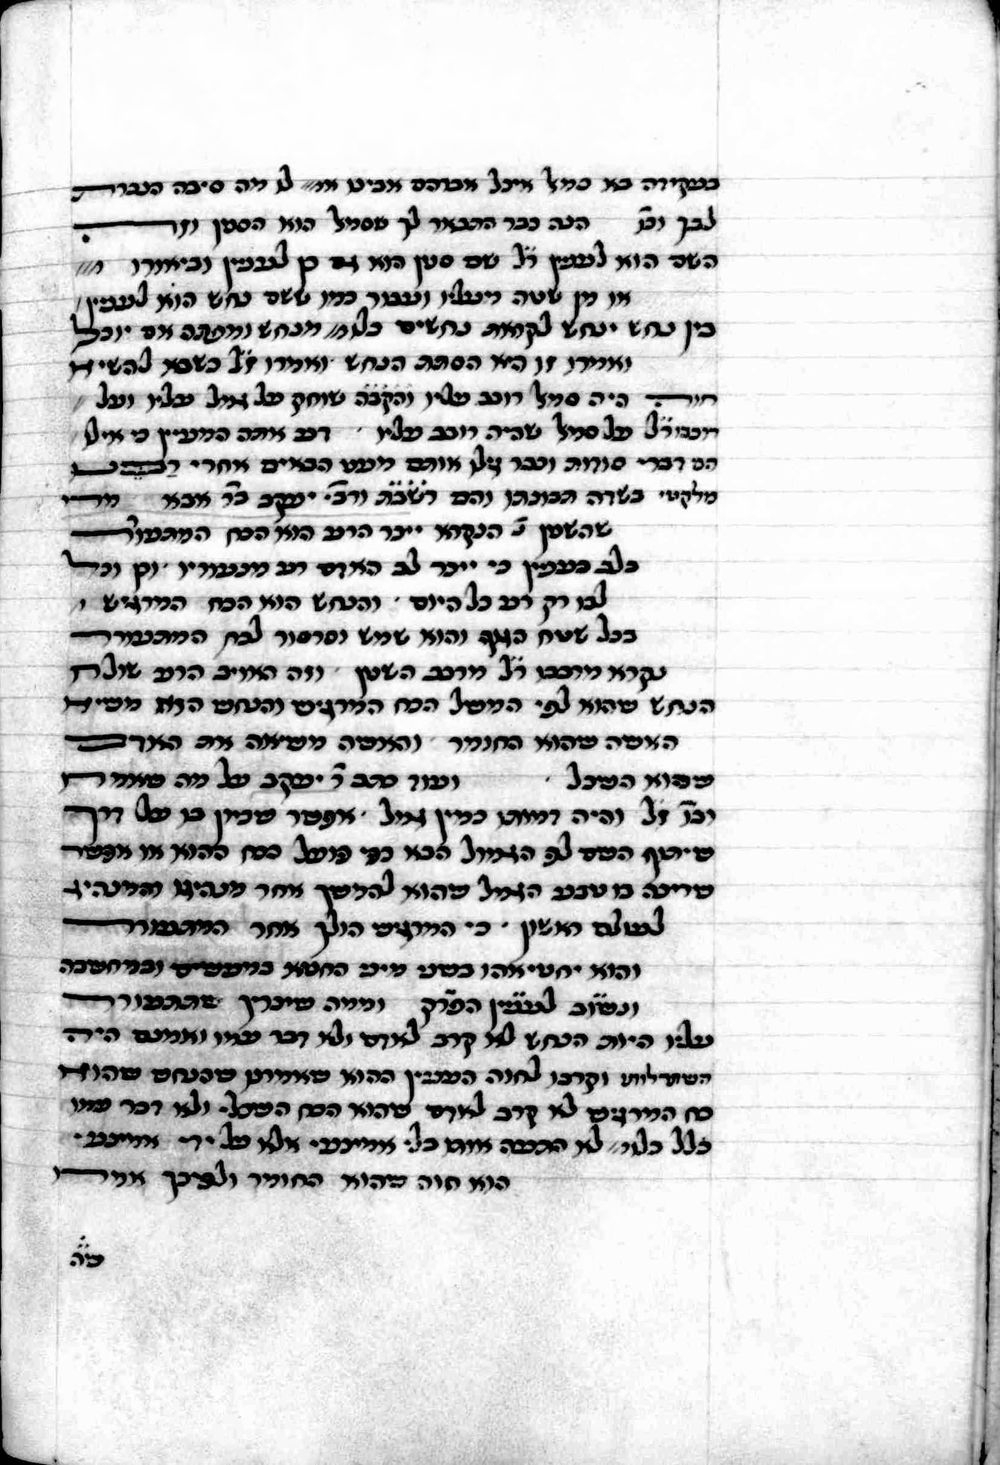 בעקידה בא סמאל אצל אברהם אבינו או׳ לו מה סיבה הגברת
לכך וכו׳ הנה כבר התבאר לך שסמאל הוא השטן וזה
השם הוא לענין ר״ל שם סטן הוא גם כן לענין וביאורו
או מן שטה מעליו ועבור כמו ששם נחש הוא לענין
כין נחש ינחש לקראת נחשים כלומ׳ מנחש ומפתה אם יוכל
ואמרו זו היא הסתת הנחש ואמרו ז״ל כשבא להשיא
חוה היה סמאל רוכב עליו והקב״ה שוחק על גמל עליו ועל
רוכבו ר״ל על סמאל שהיה רוכב עליו דע אתה המעיין כי אילו
הם דברי סודות וכבר גילו אותם מעט הבאים אחרי רבים
מלקטי בשדה תבונתו והם רשב״ת ורבי יעקב ב״ר אבא מרי
שהשטן הנקרא ייצר הרע הוא הכח המתעורר
כלב כענין כי ייצר לב האדם רע מנעוריו וכן וכל
לבו רק רע כל היום והנחש הוא הכח המרגיש
בכל שטח הגוף והוא שמש וסרסור לכח המתעורר
נקרא מרכבו ר״ל מרכב השטן וזה האויב הרע שולח
הנחש שהוא לפי המשל הכח המרגיש והנחש הזה משיא
האשה שהוא החומר והאשה משיאה את האדם
שהוא השכל ועוד כתב ר׳ יעקב על מה שאמר
וכו׳ ז״ל והיה דמותו כמין גמל אפשר שכיון בו על דרך
שיתוף השם לפי הגמול הבא כפי פועל כח ההוא או אפשר
שרימה בו טבע הגמל שהוא להמשך אחר מנהיגו ומנהיג
לעולם ראשון כי המרגיש הולך אחר המתעורר
והוא יחטיאהו בשני מיני החטא במעשים ובמחשבה
ונשוב לענין הפרק וממה שיצריך שתתעורר
עליו היות הנחש לא קרב לאדם ולא דבר עמו ואמנם היה
השתדלותו וקרבו לחוה הענין ההוא שאמרנו שהנחש שהוא
כח המרגיש לא קרב לאדם שהוא הכח השכלי ולא דבר עמו
כלל כלומ׳ לא הטעה אותו בלי אמצעי אלא על ידי אמצעי
הוא חוה שהוא החומר ולפיכך אמרו
מ״ה